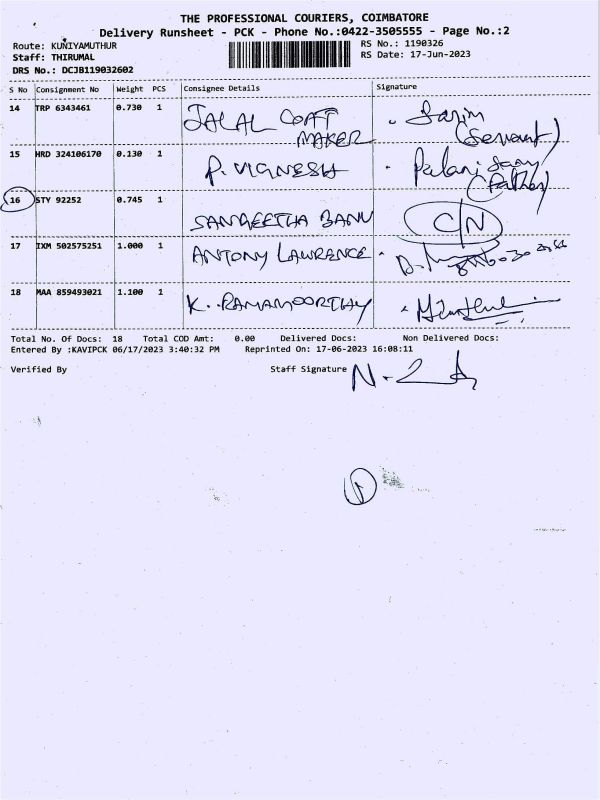 THE PROFESSIONAL COURIERS, COIMBATORE
Delivery Runsheet - PCK - Phone No.:0422-3505555 - Page No.:2
Route: KUNIYAMUTHUR RS No.: 1190326
Staff: THIRUMAL RS Date: 17-Jun-2023
DRS No.: DCJB119032602
S No Consignment No Weight PCS Consignee Details Signature
14 TRP 6343461 0.730 1 JALAL COAT
MAKER (Servant)
15 HRD 324106170 0.130 1 P. VIGNESH Palani Samy
(Father)
16 STY 92252 0.745 1 SANGEETHA BANU C/N
17 IXM 502575251 1.000 1 ANTONY LAWRENCE
18 MAA 859493021 1.100 1 K. RAMAMOORTHY
Total No. Of Docs: 18 Total COD Amt: 0.00 Delivered Docs: Non Delivered Docs:
Entered By :KAVIPCK 06/17/2023 3:40:32 PM Reprinted On: 17-06-2023 16:08:11
Verified By Staff Signature
1